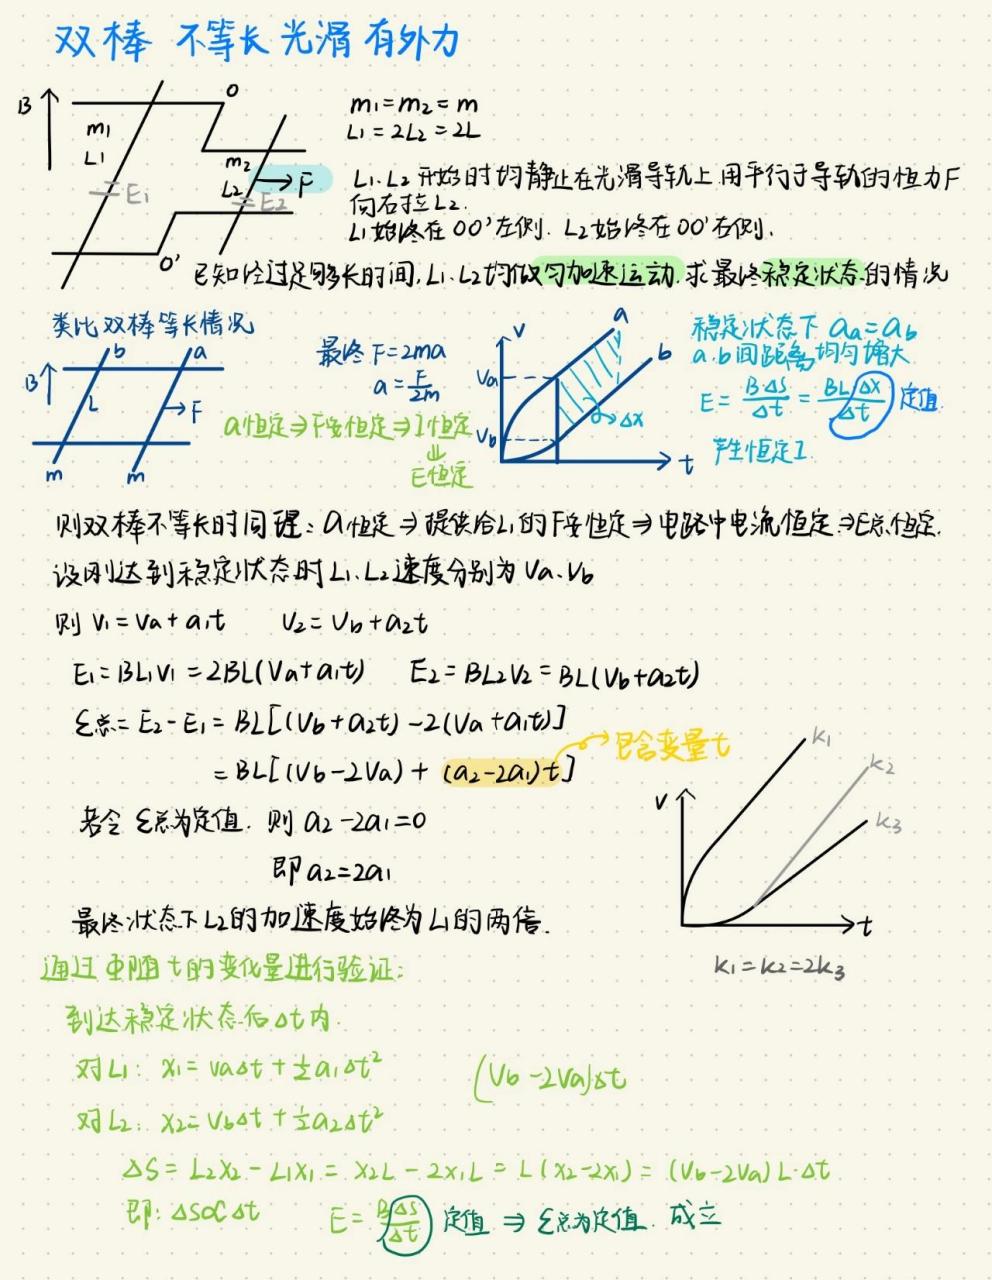 双棒 不等长光滑有外力
B
m₁
L₁
E₁
O
m₂
L₂
F
E₂
O'
m₁=m₂=m
L₁=2L₂=2L
L₁.L₂开始时均静止在光滑导轨上用平行于导轨的恒力F
向右拉L₂.
L₁始终在OO'左侧. L₂始终在OO'右侧.
已知经过足够长时间,L₁.L₂均做匀加速运动.求最终稳定状态的情况
类比双棒等长情况
b
a
B
L
F
m
m
最终F=2ma
a=F/2m
a恒定⇒F安恒定⇒I恒定
⇓
E恒定
v
a
b
Va
Vb
Δx
t
稳定状态下 aa=ab
a.b间距离均匀增大
E=B·ΔS/Δt=BLΔx/Δt 定值
产生恒定I
则双棒不等长时同理:a恒定⇒提供给L₁的F安恒定⇒电路中电流恒定⇒E总恒定.
设刚达到稳定状态时L₁.L₂速度分别为Va.Vb
则 V₁=Va+a₁t V₂=Vb+a₂t
E₁=BL₁V₁=2BL(Va+a₁t) E₂=BL₂V₂=BL(Vb+a₂t)
ε总=E₂-E₁=BL[(Vb+a₂t)-2(Va+a₁t)]
=BL[(Vb-2Va)+(a₂-2a₁)t]
包含变量t
若令ε总为定值. 则a₂-2a₁=0
即a₂=2a₁
最终状态下L₂的加速度始终为L₁的两倍.
v
k₁
k₂
k₃
t
k₁=k₂=2k₃
通过Φ随t的变化量进行验证:
到达稳定状态后Δt内.
对L₁: x₁=vaΔt+½a₁Δt²
(Vb-2Va)Δt
对L₂: x₂=VbΔt+½a₂Δt²
ΔS=L₂x₂-L₁x₁=x₂L-2x₁L=L(x₂-2x₁)=(Vb-2Va)L·Δt
即:ΔS∝Δt
E=BΔS/Δt 定值⇒ε总为定值. 成立